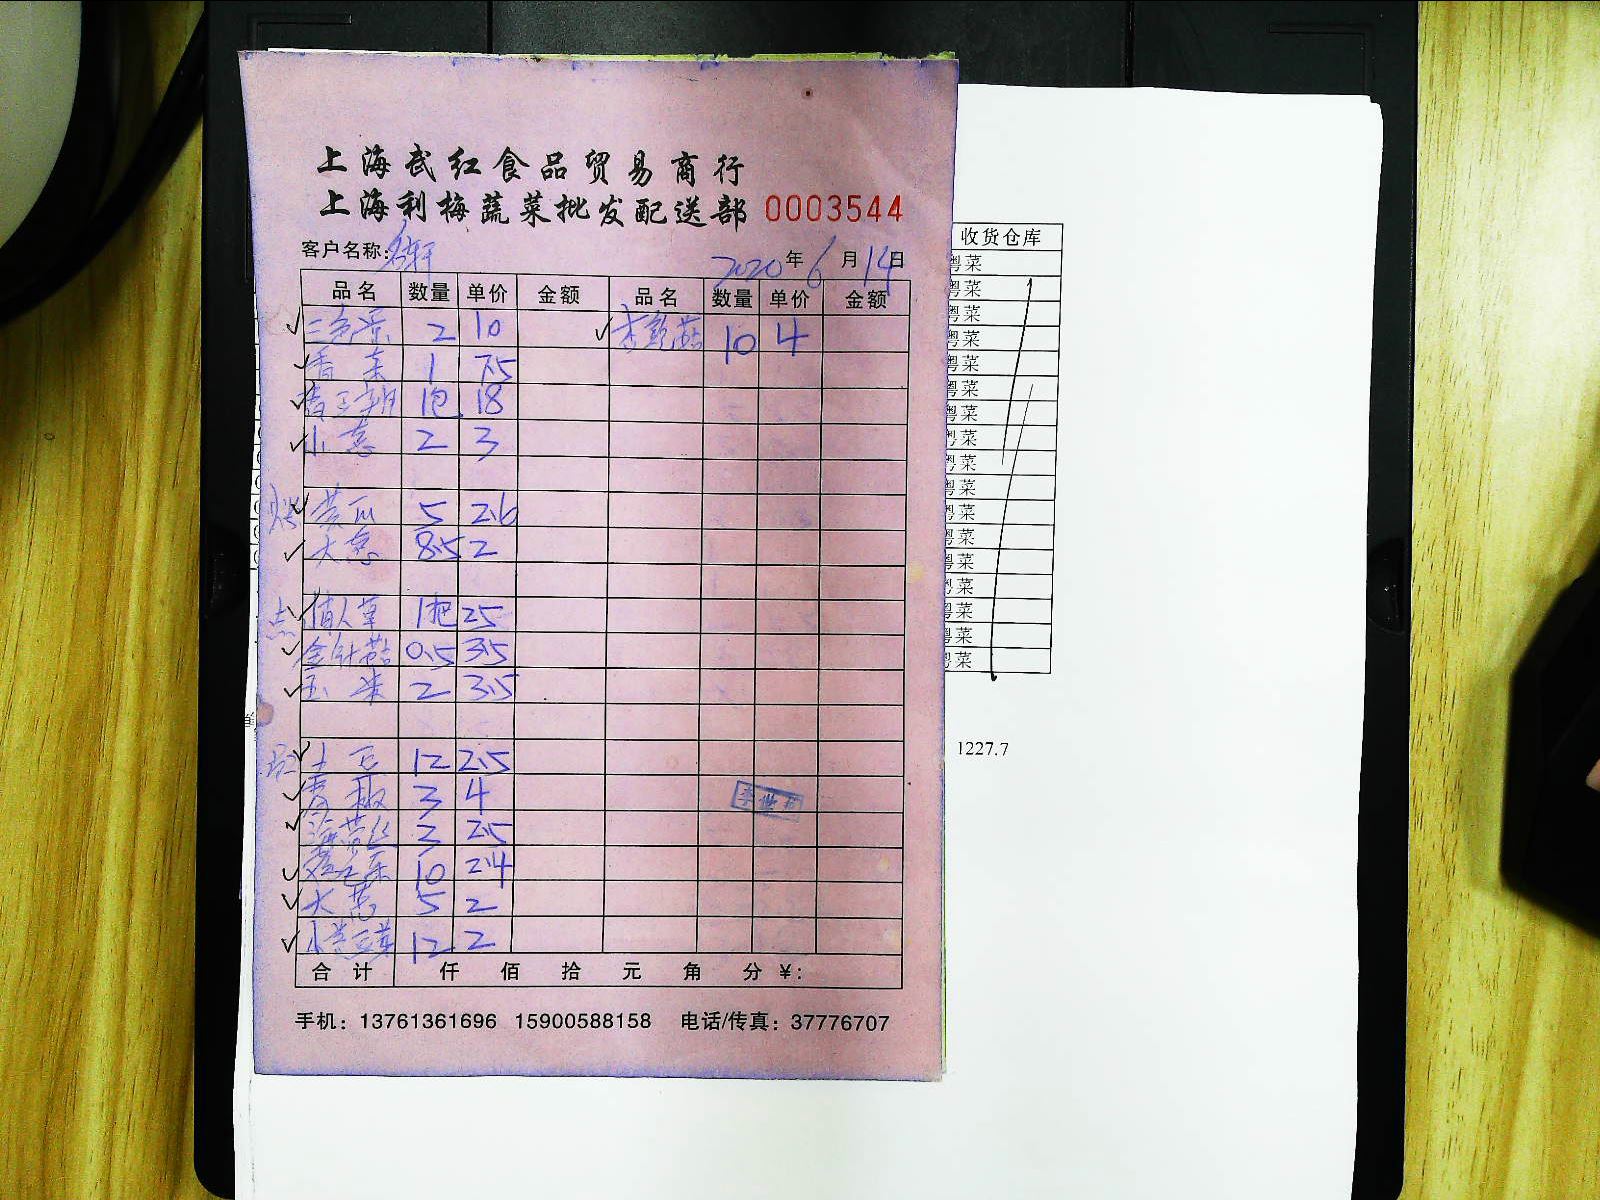 上海武红食品贸易商行
上海利梅蔬菜批发配送部 0003544
客户名称: 名轩 2020年6月14日
品名 数量 单价 金额 品名 数量 单价 金额
2 10 10 4
香 1 7.5
1包 18
小葱 2 3
黄瓜 5 2.6
大葱 8.5 2
点 1把 25
金针菇 0.5 3.5
玉米 2 3.5
土豆 12 2.5
青椒 3 4
海带丝 3 2.5
10 2.4
大葱 5 2
小黄豆芽 12 2
合计 仟 佰 拾 元 角 分 ¥:
手机: 13761361696 15900588158 电话/传真: 37776707
收货仓库
粤菜
粤菜
粤菜
粤菜
粤菜
粤菜
粤菜
粤菜
粤菜
粤菜
粤菜
粤菜
粤菜
粤菜
粤菜
粤菜
粤菜
1227.7